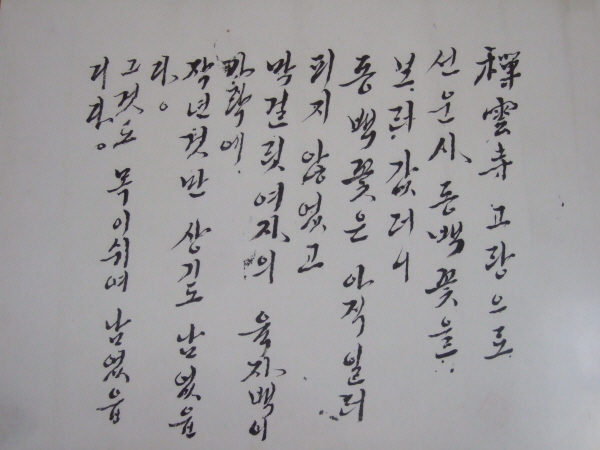 禪雲寺 고랑으로
선운사 동백꽃을
보러 갔더니
동백꽃은 아직 일러
피지 않었고
막걸릿여자의 육자백이
가락에
작년것만 상기도 남었읍
디다。
그것도 목이쉬여 남었읍
디다。